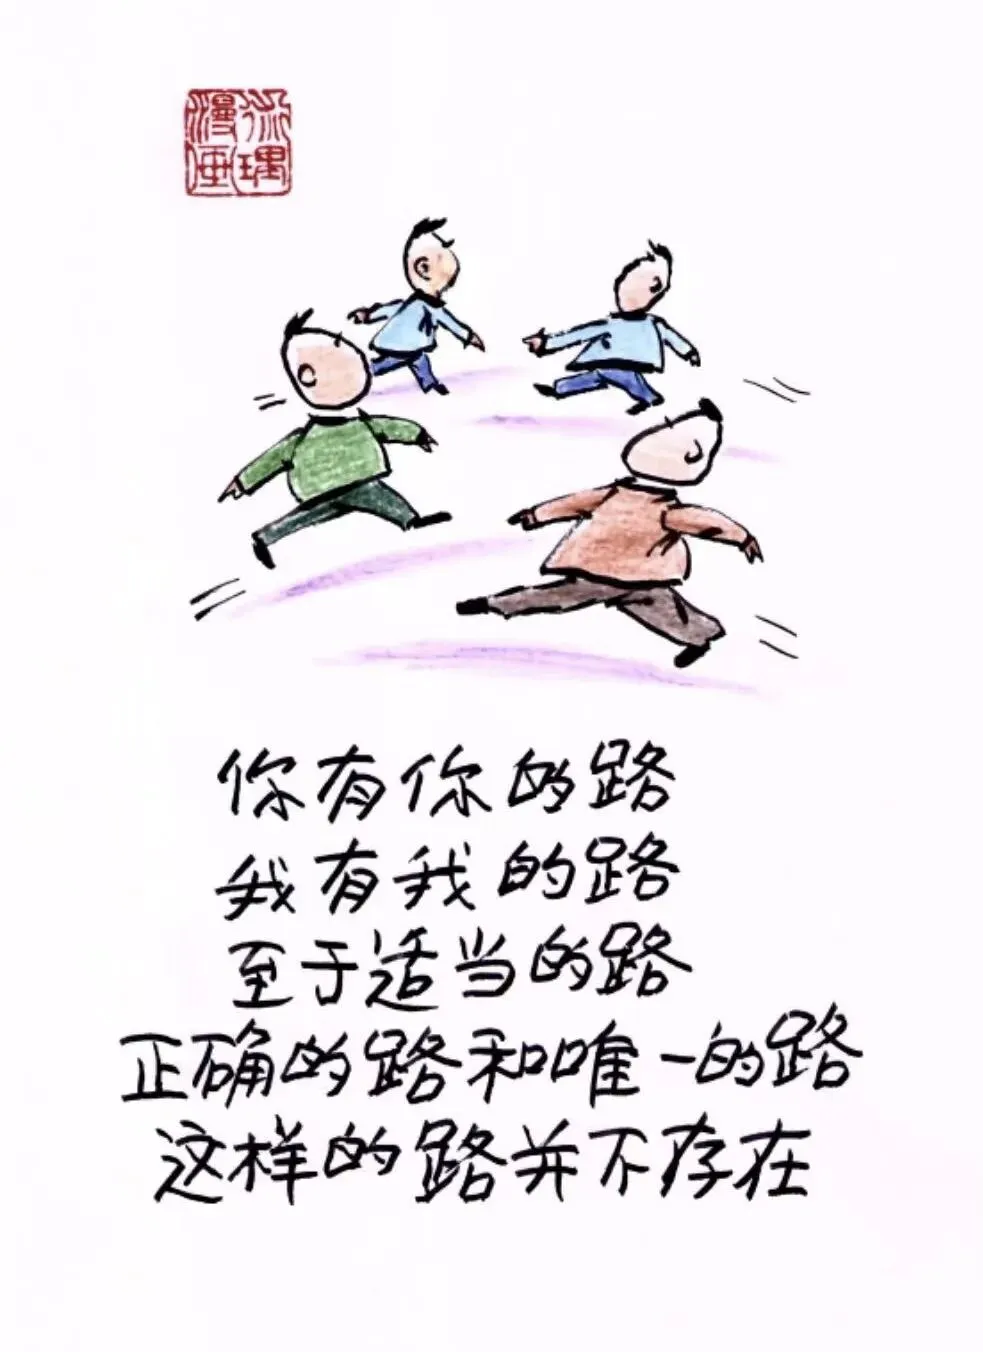 你有你的路
我有我的路
至于适当的路
正确的路和唯一的路
这样的路并不存在